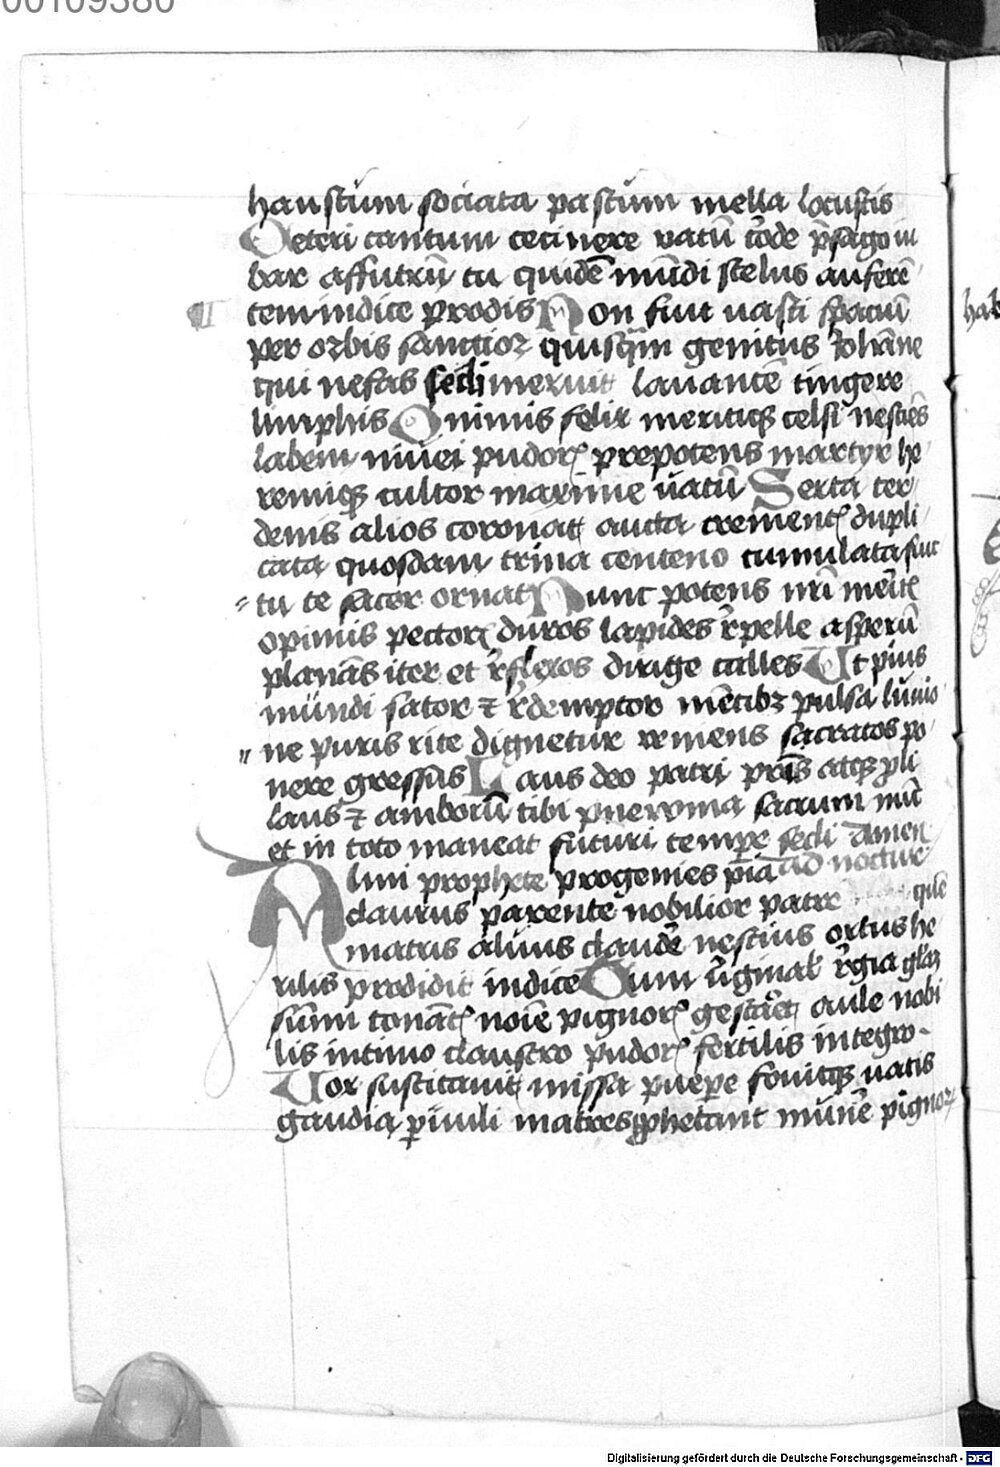 00109380
haustum sociata pastum mella locustis
Ceteri tantum cecinere vatū corde p̄sago iu
bar affuturū tu quidē mūdi scelus auferē
tem indice prodis Non fuit vasti spaciū
per orbis sanctior quisq̄m genitus Johāne
qui nefas secli meruit lavantē tingere
limphis O nimis felix meritiqꝫ celsi nesciēs
labem nivei pudorꝭ prepotens martyr he
remiqꝫ cultor maxime vatū Serta ter
denis alios coronāt aucta crementꝭ dupli
cata quosdam trina centeno cumulata fruc
tu te sacer ornāt Nunc potens nr̄i merit̄
opimis pectorꝭ duros lapides r̄pelle asperū
planās iter et r̄flexos dirige calles Ut pius
mundi sator ⁊ r̄demptor mētibꝫ pulsa livio
ne puris rite dignetur veniens sacratos po
nere gressus Laus deo patri prolis atqꝫ p̄li
laus ⁊ amborū tibi pneroma sacrum nūc
et in toto maneat futuri tempe secli Amen
Almi prophete progenies pia ad nocturꝭ
clarus parente nobilior patre quē
matris alvus claudē nescius ortus he
rilis prodidit indice Cum v̄ginal̄ r̄gia glaꝫ
sūmi tonātꝭ noīe pignorꝭ gestāet aule nobi
lis intimo claustro pudorꝭ fertilis integro
Vox suscitavit missa puerpe fovitqꝫ vatis
gaudia ꝑvuli matres ꝓphetant munē pignoꝝ
hab
Digitalisierung gefördert durch die Deutsche Forschungsgemeinschaft - DFG